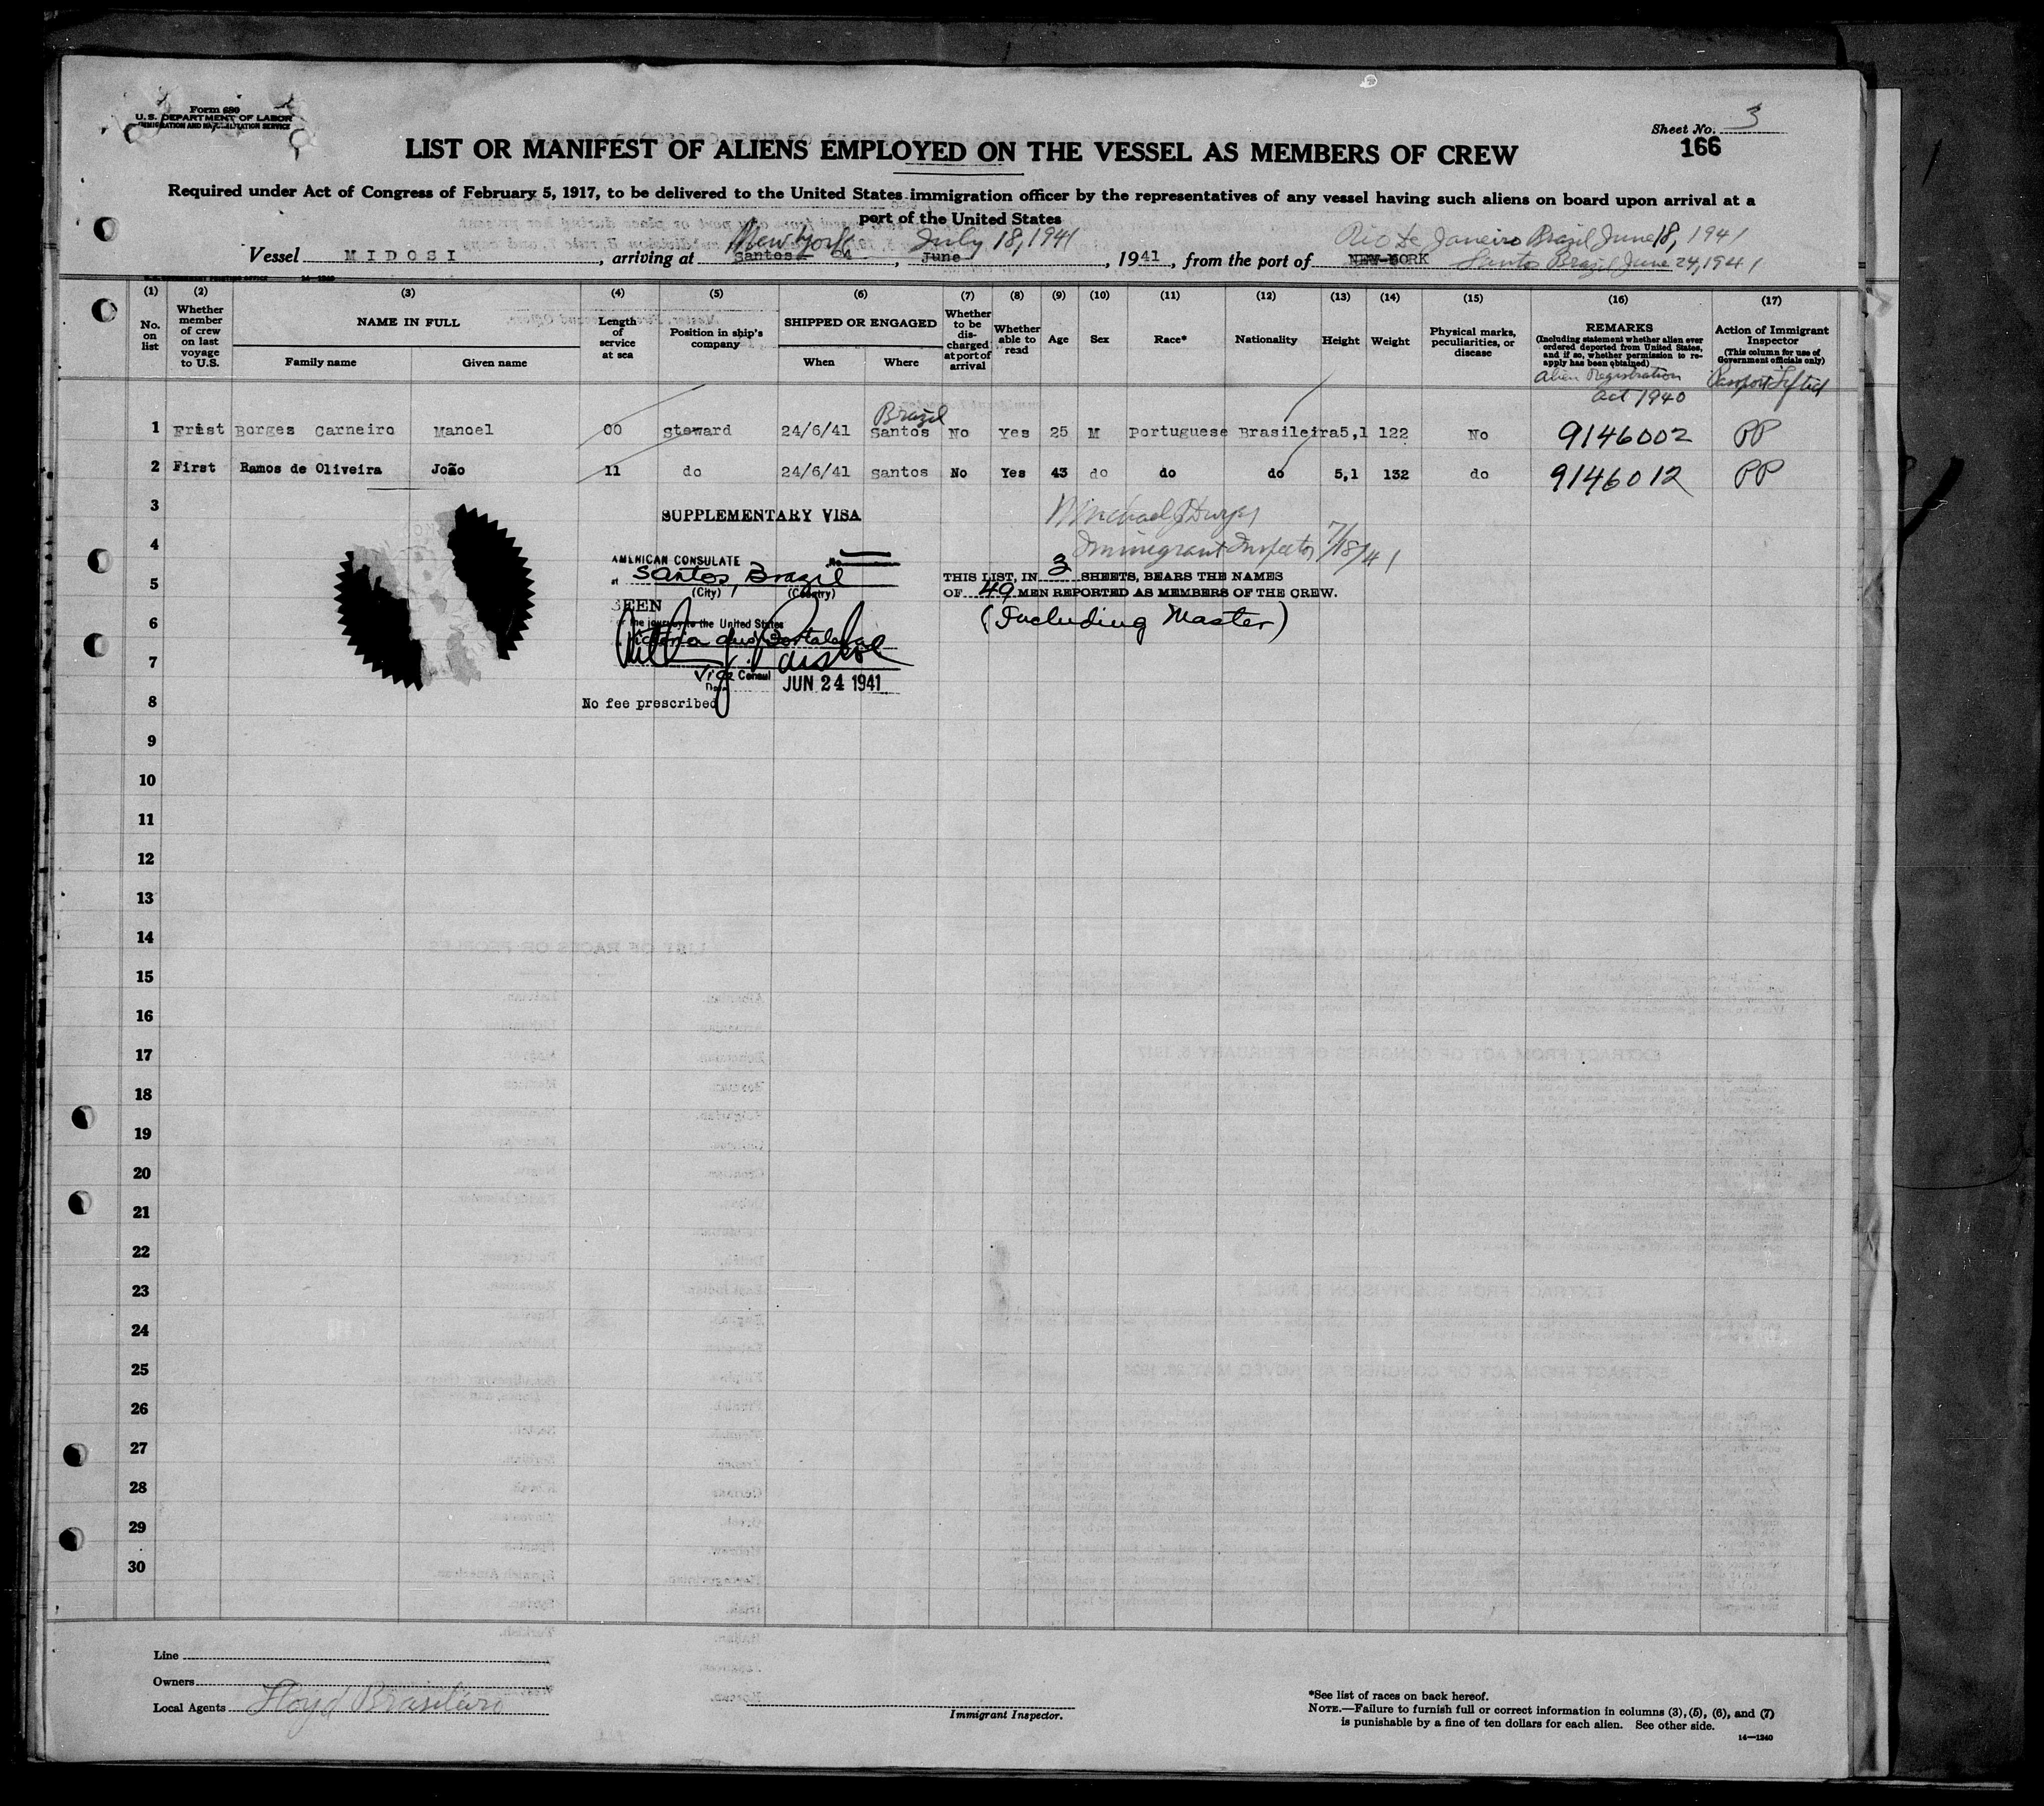 Form 680
U.S. DEPARTMENT OF LABOR
IMMIGRATION AND NATURALIZATION SERVICE
Sheet No. 3
166
LIST OR MANIFEST OF ALIENS EMPLOYED ON THE VESSEL AS MEMBERS OF CREW
Required under Act of Congress of February 5, 1917, to be delivered to the United States immigration officer by the representatives of any vessel having such aliens on board upon arrival at a
port of the United States
New York July 18, 1941 Rio de Janeiro Brazil June 18, 1941
Vessel MIDOSI, arriving at Santos 24, June, 1941, from the port of NEW-YORK Santos Brazil June 24, 1941
(1) (2) (3) (4) (5) (6) (7) (8) (9) (10) (11) (12) (13) (14) (15) (16) (17)
No. on list
Whether member of crew on last voyage to U.S.
NAME IN FULL
Family name
Given name
Length of service at sea
Position in ship's company
SHIPPED OR ENGAGED
When
Where
Whether to be discharged at port of arrival
Whether able to read
Age
Sex
Race*
Nationality
Height
Weight
Physical marks, peculiarities, or disease
REMARKS
(Including statement whether alien ever ordered deported from United States, and if so, whether permission to reapply has been obtained)
Action of Immigrant Inspector
(This column for use of Government officials only)
Alien Registration
Act 1940
Passport
Brazil
1 Frist Borges Carneiro Manoel 00 steward 24/6/41 Santos No Yes 25 M Portuguese Brasileira 5,1 122 No 9146002 PP
2 First Ramos de Oliveira João 11 do 24/6/41 Santos No Yes 43 do do do 5,1 132 do 9146012 PP
3
SUPPLEMENTARY VISA
Michael
4
Immigrant Inspector 7/18/41
AMERICAN CONSULATE No.
at Santos, Brazil
(City) (Country)
THIS LIST, IN 3 SHEETS, BEARS THE NAMES
5
OF 49 MEN REPORTED AS MEMBERS OF THE CREW.
SEEN
6
(Including Master)
for the journey to the United States
7
Vice Consul
Date JUN 24 1941
8
No fee prescribed
9
10
11
12
13
14
15
16
17
18
19
20
21
22
23
24
25
26
27
28
29
30
Line
Owners
Local Agents Lloyd Brasileiro
Immigrant Inspector.
*See list of races on back hereof.
NOTE.—Failure to furnish full or correct information in columns (3), (5), (6), and (7)
is punishable by a fine of ten dollars for each alien. See other side.
14—1240